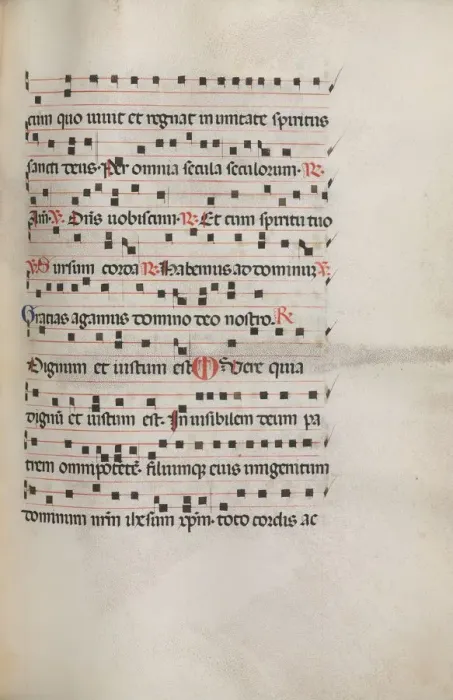 cum quo uiuit et regnat in unitate spiritus
sancti deus. Per omnia secula seculorum. R.
Am. V. Dñs uobiscum. R. Et cum spiritu tuo
V. Sursum corda R. Habemus ad dominum V.
Gracias agamus domino deo nostro. R
Dignum et iustum est Vere quia
dignũ et iustum est. Inuisibilem deum pa
trem omnipotẽtẽ. filiumqz eius unigenitum
dominum nr̃m ihesum xp̃m. toto cordis ac